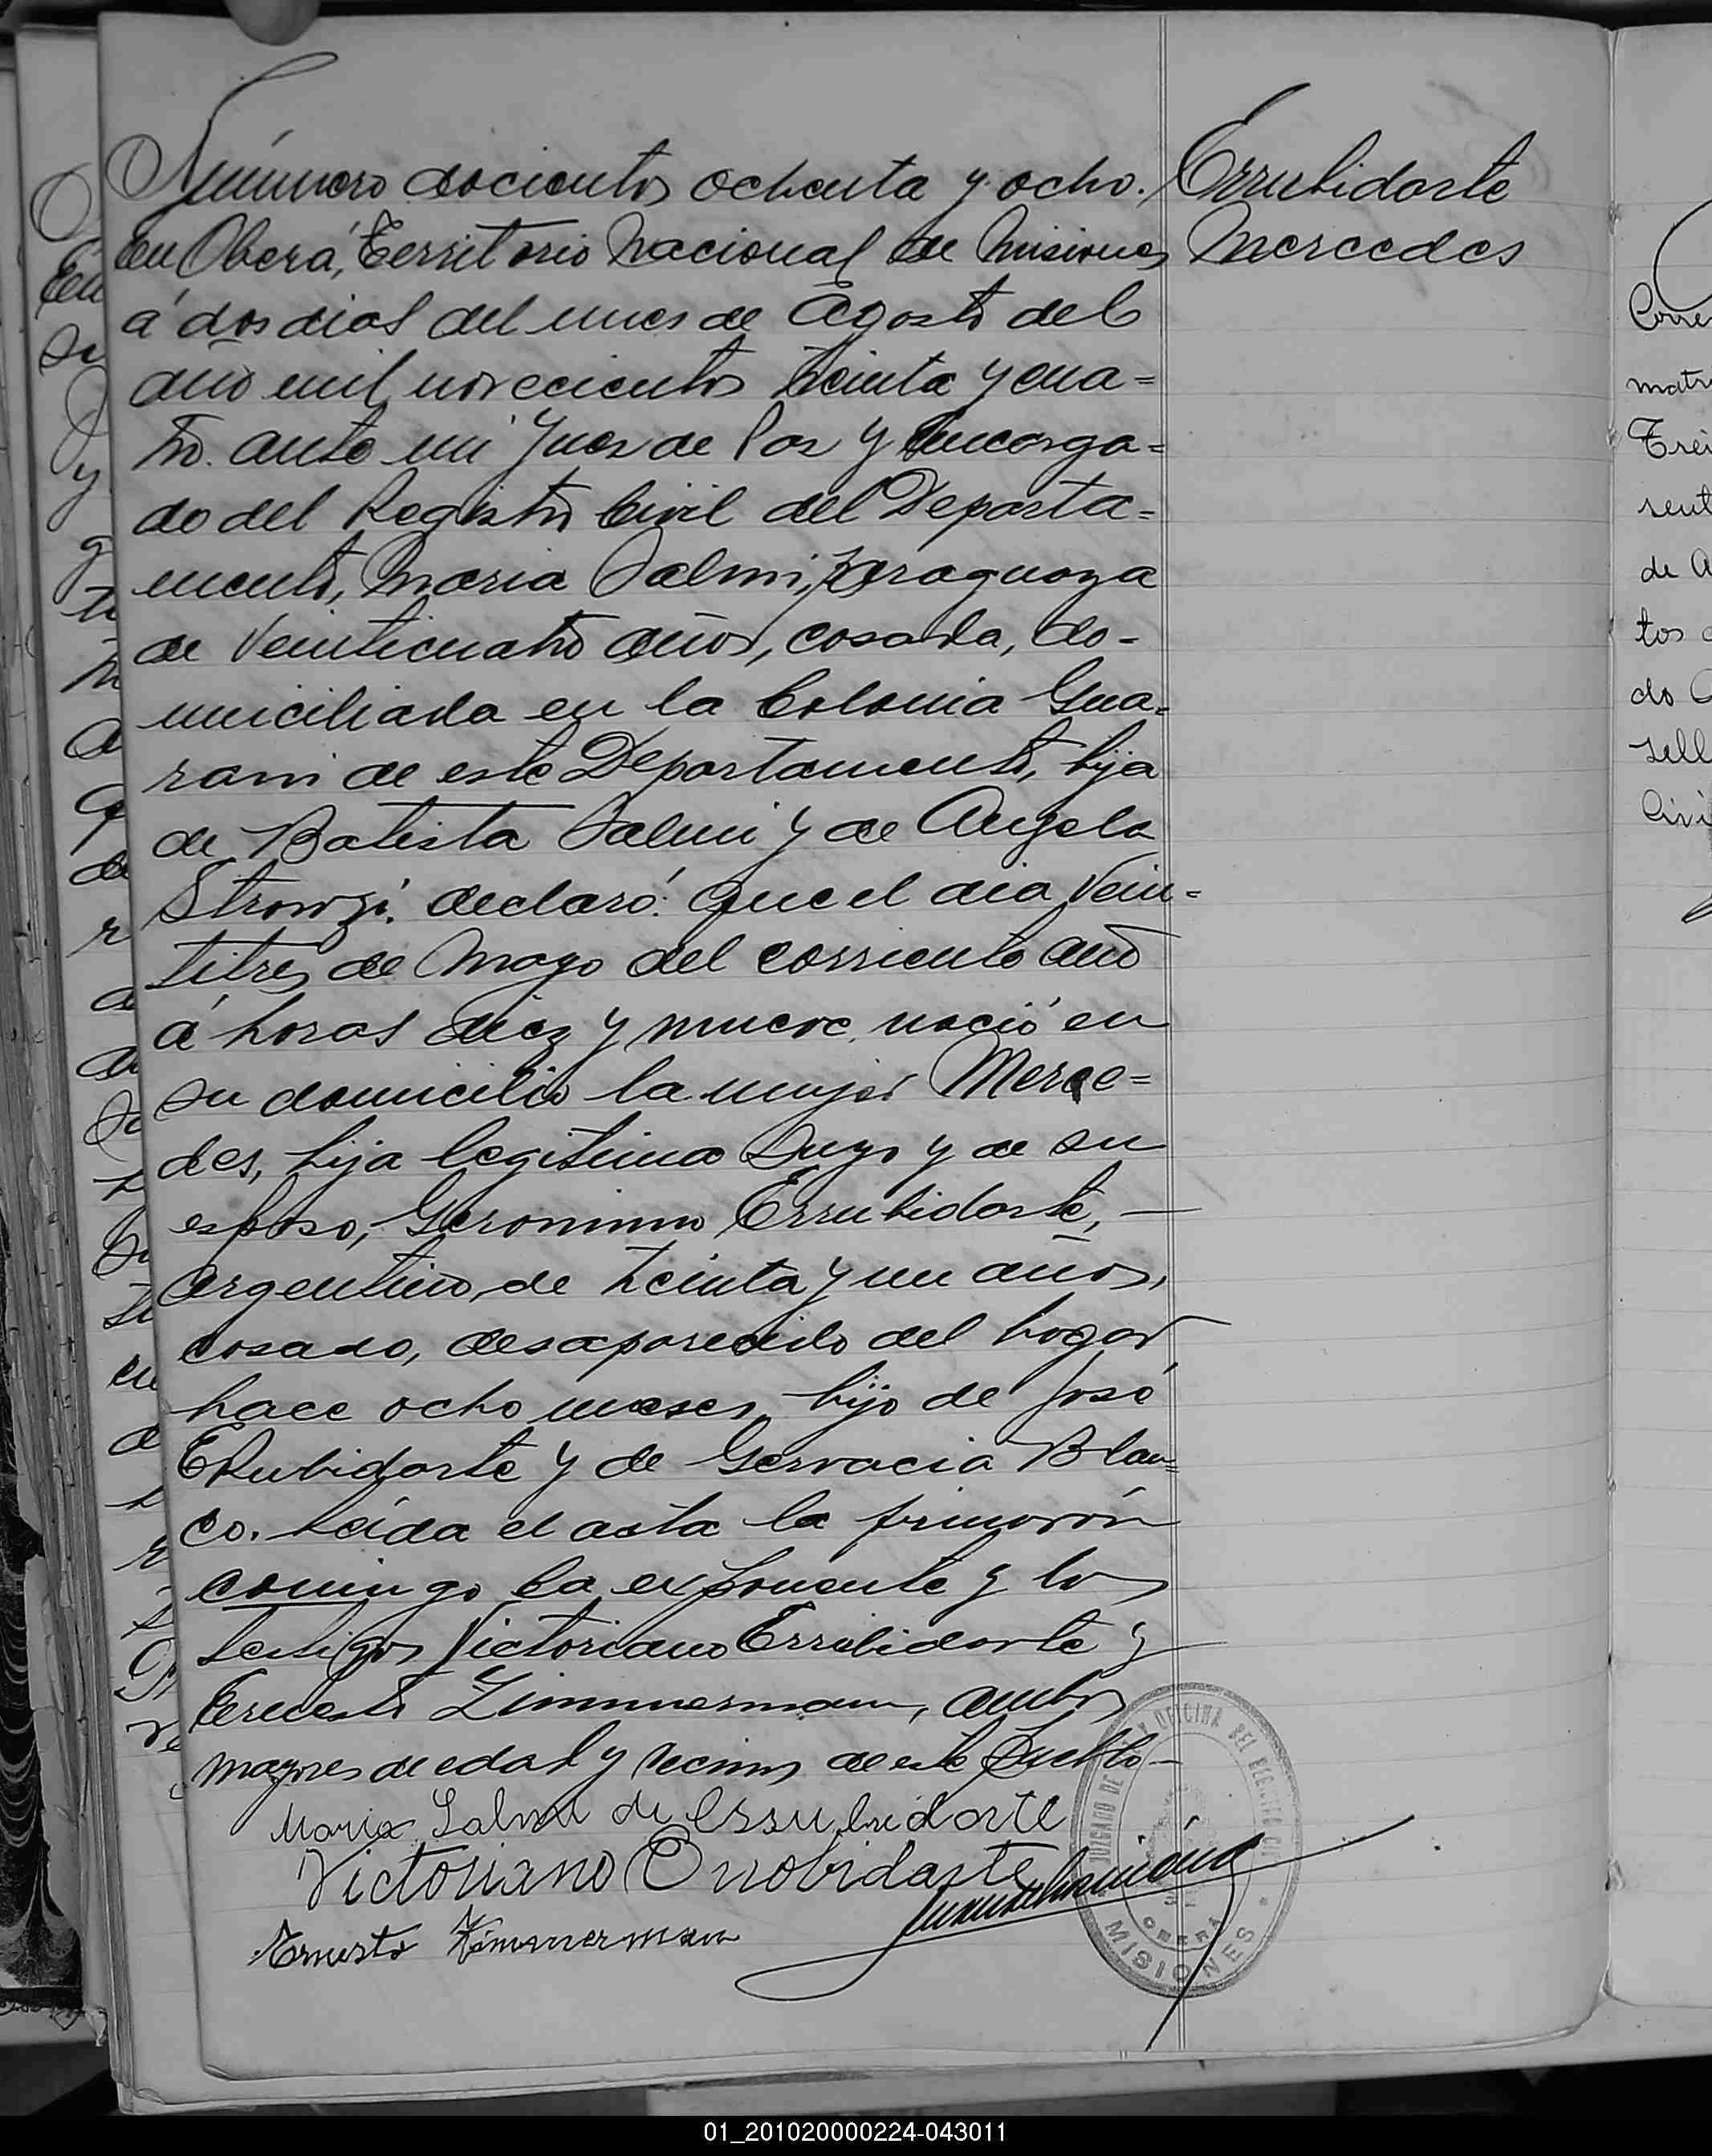 Número docientos ochenta y ocho.
Errubidarte
Mercedes
En Oberá, Territorio Nacional de Misiones
á dos dias del mes de Agosto del
año mil novecientos treinta y cua=
tro. ante mi Juez de Paz y Encarga=
do del Registro Civil del Departa=
mento, Maria Salmi, paraguaya
de veinticuatro años, casada, do-
miciliada en la Colonia Gua=
rani de este Departamento, hija
de Batista Salmi y de Angela
declaró: Que el dia vein=
titres de Mayo del corriente año
á horas diez y nueve, nació en
su domicilio la mujer Merce=
des, hija legitima suya y de su
esposo, Geronimo Errubidarte, —
argentino, de treinta y un años,
casado, desaparecido del hogar
hace ocho meses, hijo de José
ERubidarte y de Gervacia Blan=
co. Leida el acta la firmaron
comingo la exponente y los
testigos Victoriano Errubidarte y
Ernesto Zimmermann, ambos
mayores de edad y vecinos de este Pueblo —
Maria Salmi de Errubidarte
Victoriano Errobidarte
Ernesto
JUZGADO DE Y OFICINA DEL REGISTRO
OBERA
MISIONES
Corre
matr
Trei
sent
de A
tos
do
sell
Civi
01_201020000224-043011